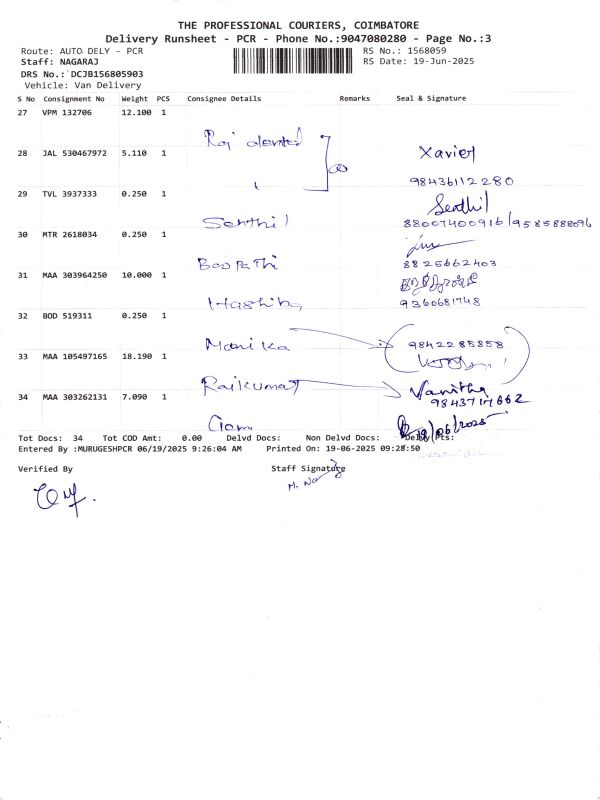 THE PROFESSIONAL COURIERS, COIMBATORE
Delivery Runsheet - PCR - Phone No.:9047080280 - Page No.:3
Route: AUTO DELY - PCR RS No.: 1568059
Staff: NAGARAJ RS Date: 19-Jun-2025
DRS No.: DCJB156805903
Vehicle: Van Delivery
S No Consignment No Weight PCS Consignee Details Remarks Seal & Signature
27 VPM 132706 12.100 1
Raj dental
28 JAL 530467972 5.110 1 Xavier
98436112280
29 TVL 3937333 0.250 1 Senthil
Senthil 88007400916/9585888096
30 MTR 2618034 0.250 1
Boopathi 8825662403
31 MAA 303964250 10.000 1
Hashing 9360681748
32 BOD 519311 0.250 1
Monika 9842285858
33 MAA 105497165 18.190 1
Raikumar Vanitha
34 MAA 303262131 7.090 1 9843717662
19/06/2025
Tot Docs: 34 Tot COD Amt: 0.00 Delvd Docs: Non Delvd Docs: Delby Pts:
Entered By :MURUGESHPCR 06/19/2025 9:26:04 AM Printed On: 19-06-2025 09:28:50
Verified By Staff Signature